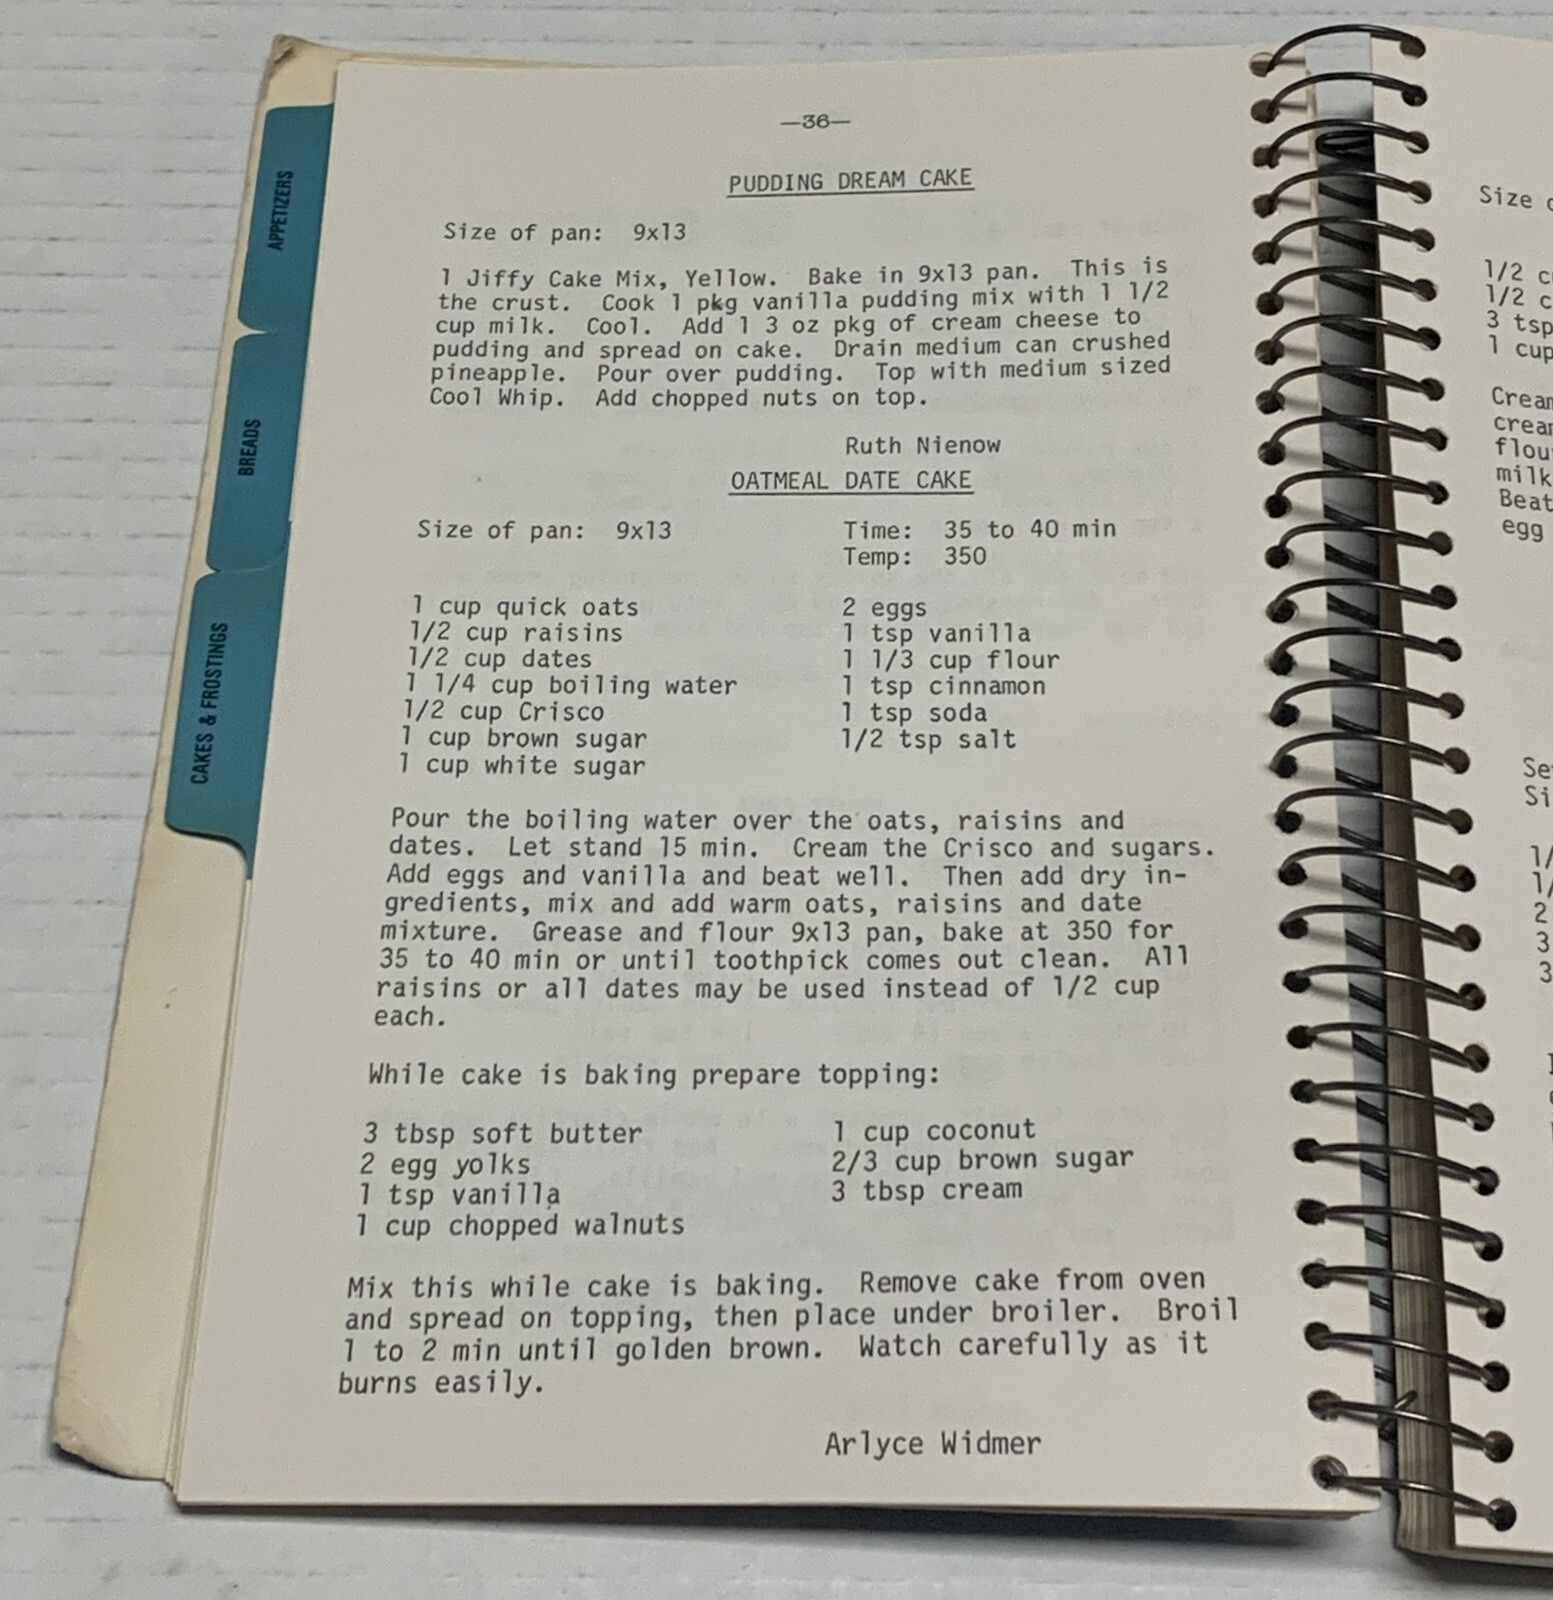 APPETIZERS
BREADS
CAKES & FROSTINGS
—36—
PUDDING DREAM CAKE
Size of pan: 9x13
1 Jiffy Cake Mix, Yellow. Bake in 9x13 pan. This is
the crust. Cook 1 pkg vanilla pudding mix with 1 1/2
cup milk. Cool. Add 1 3 oz pkg of cream cheese to
pudding and spread on cake. Drain medium can crushed
pineapple. Pour over pudding. Top with medium sized
Cool Whip. Add chopped nuts on top.
Ruth Nienow
OATMEAL DATE CAKE
Size of pan: 9x13 Time: 35 to 40 min
Temp: 350
1 cup quick oats 2 eggs
1/2 cup raisins 1 tsp vanilla
1/2 cup dates 1 1/3 cup flour
1 1/4 cup boiling water 1 tsp cinnamon
1/2 cup Crisco 1 tsp soda
1 cup brown sugar 1/2 tsp salt
1 cup white sugar
Pour the boiling water over the oats, raisins and
dates. Let stand 15 min. Cream the Crisco and sugars.
Add eggs and vanilla and beat well. Then add dry in-
gredients, mix and add warm oats, raisins and date
mixture. Grease and flour 9x13 pan, bake at 350 for
35 to 40 min or until toothpick comes out clean. All
raisins or all dates may be used instead of 1/2 cup
each.
While cake is baking prepare topping:
3 tbsp soft butter 1 cup coconut
2 egg yolks 2/3 cup brown sugar
1 tsp vanilla 3 tbsp cream
1 cup chopped walnuts
Mix this while cake is baking. Remove cake from oven
and spread on topping, then place under broiler. Broil
1 to 2 min until golden brown. Watch carefully as it
burns easily.
Arlyce Widmer
Size
1/2
1/2
3 tsp
1 cup
milk
Beat
egg
2
3
3